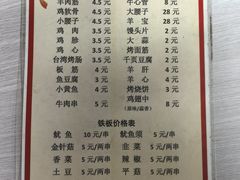 羊肉筋 4.5元 牛心管 8元
鸡软骨 4.5元 大腰子 28元
小腰子 4.5元 羊宝 28元
鸡肉 3.5元 馒头片 2元
鸡胗 3.5元 大蒜 2元
鸡心 3.5元 烤面筋 2元
台湾烤肠 3.5元 千页豆腐 2元
板筋 4元 羊肝 4元
鱼豆腐 3元 羊心 4元
小黄鱼 4元 烤烧饼 3元
牛肉串 5元 鸡翅中 8元
(原味/蒜香)
铁板价格表
鱿鱼 10元/串 鱿鱼须 5元/串
金针菇 5元/两串 韭菜 5元/两串
香菜 5元/两串 辣椒 5元/两串
土豆 5元/两串 平菇 5元/两串